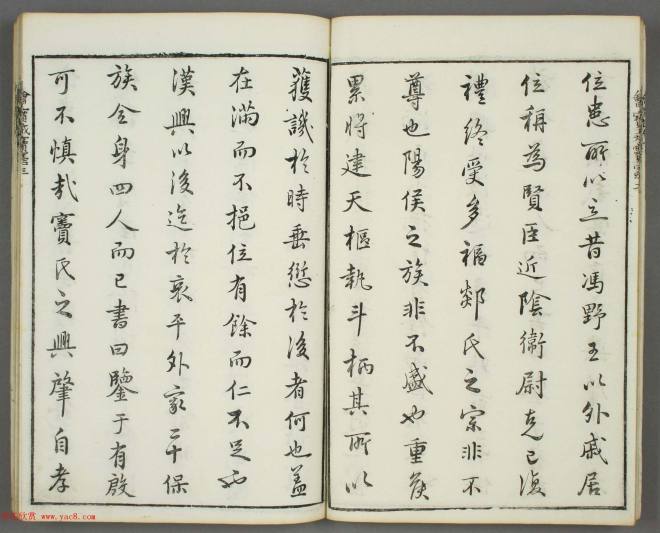 位患所以立昔馮野王以外戚居
位稱為賢臣近陰衛尉克己復
禮終受多福郯氏之宗非不
尊也陽侯之族非不盛也重侯
累將建天樞執斗柄其所以
獲譏於時垂愆於後者何也蓋
在滿而不挹位有餘而仁不足也
漢興以後迄於哀平外家二十保
族全身四人而已書曰鑒于有殷
可不慎哉竇氏之興肇自孝
www.yac8.com